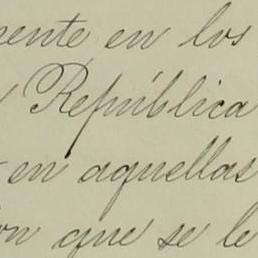 mente en los
República
en aquellas
que se le